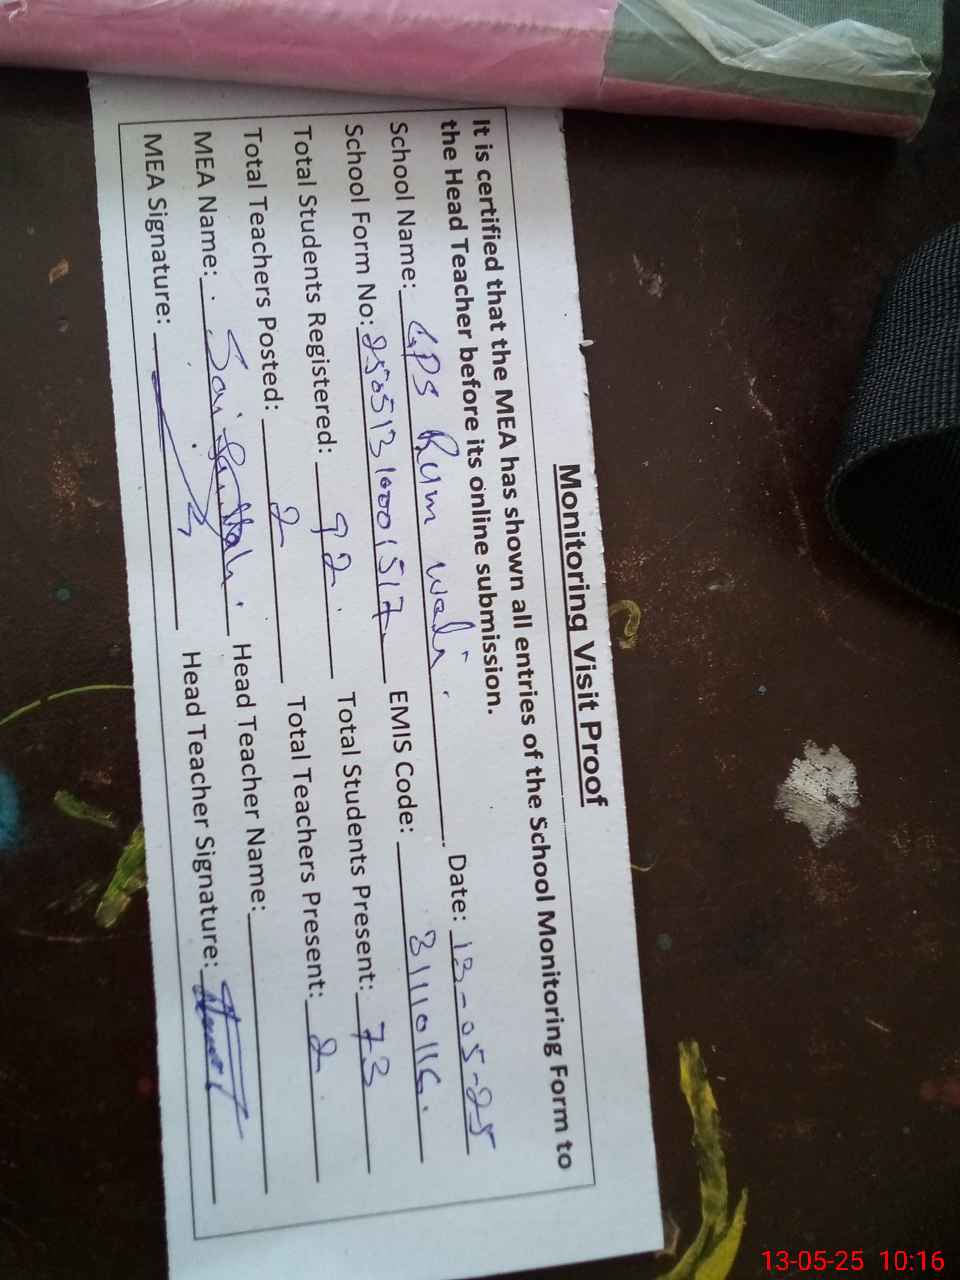 Monitoring Visit Proof
It is certified that the MEA has shown all entries of the School Monitoring Form to
the Head Teacher before its online submission.
School Name: GPS Rum wali. Date: 13-05-25
School Form No: EMIS Code: 31110116.
Total Students Registered: 92. Total Students Present: 73
Total Teachers Posted: 2 Total Teachers Present: 2
MEA Name: Head Teacher Name:
MEA Signature: Head Teacher Signature:
13-05-25 10:16